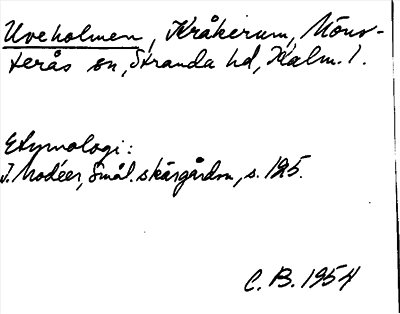 Uveholmen, Kråkerum, Möns-
terås sn, Stranda hd, Kalm. l.
Etymologi:
I. Modéer, Smål. skärgårdsn, s. 125.
C. B. 1954